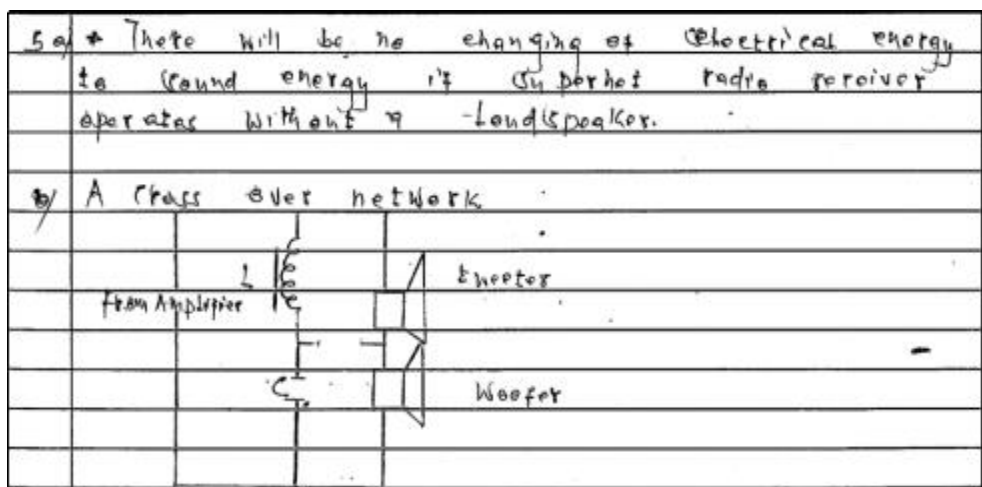 5 a) * There will be no changing of electrical energy
to sound energy if superhet radio receiver
operates without a loudspeaker.
b) A Cross over network
L
tweeter
From Amplifier
C
Woofer